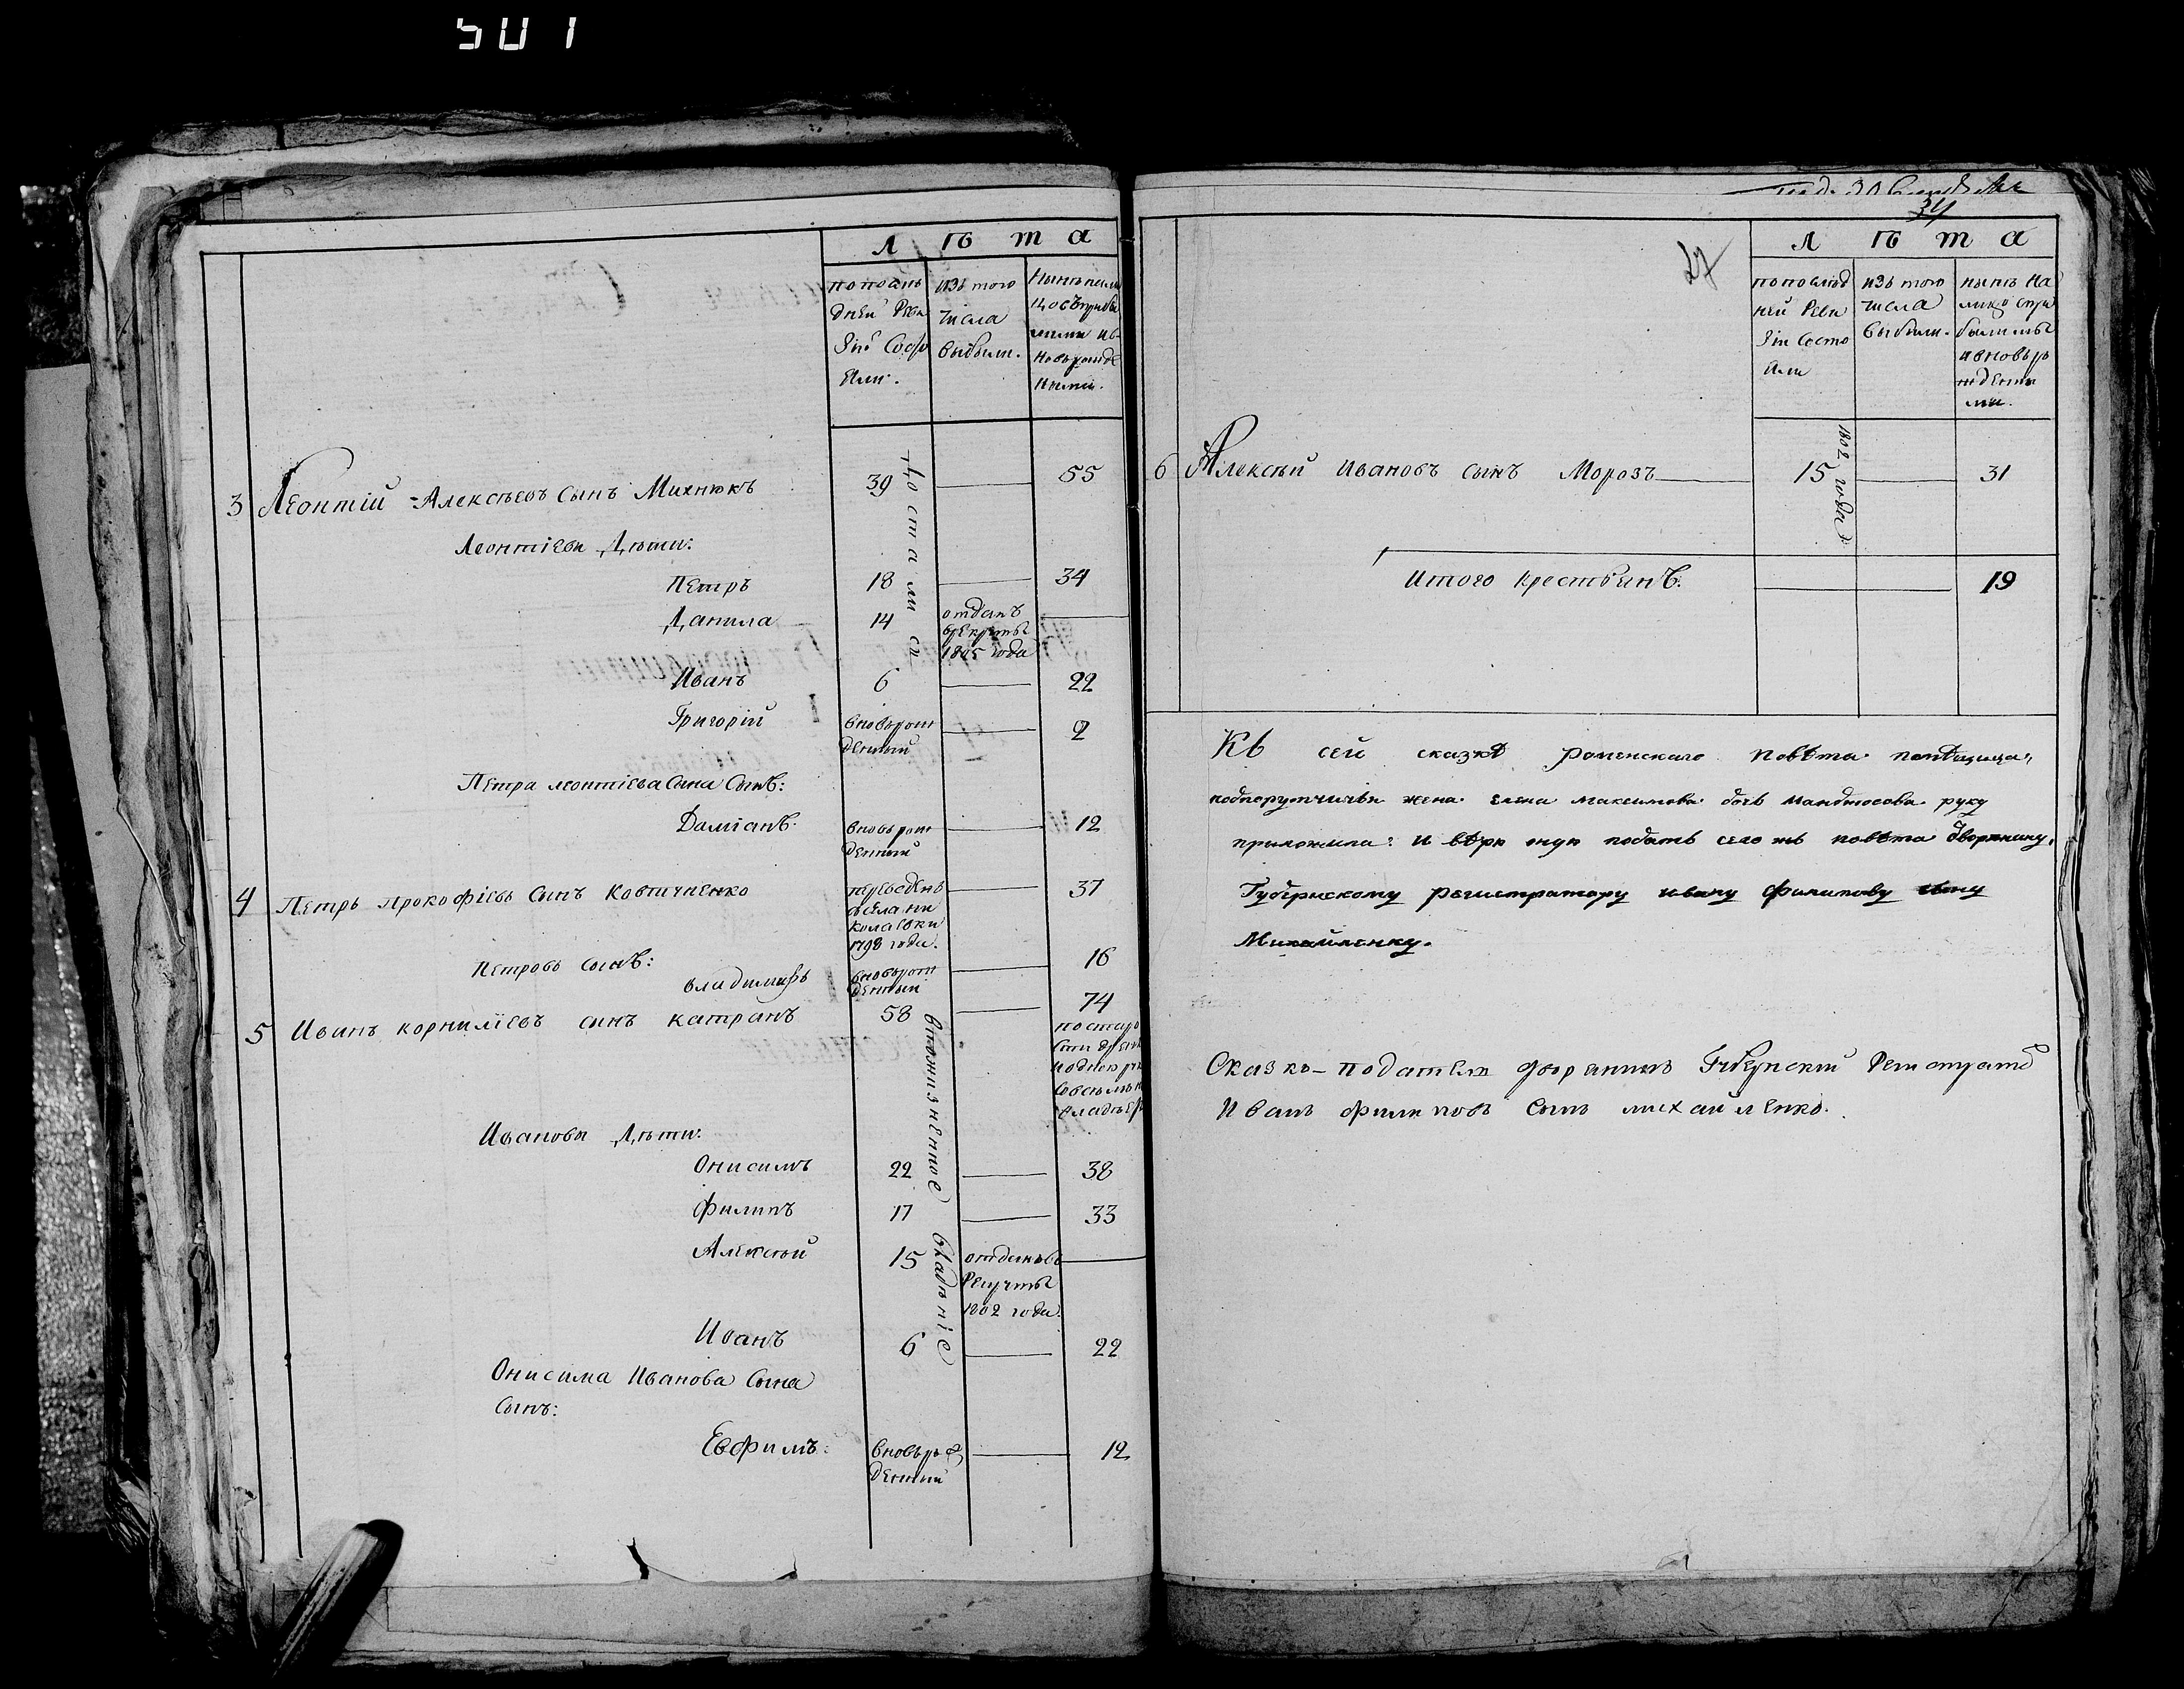 501
Лѣта
по послѣ
дней Реви
зіи Состо
яли.
изъ того
числа
выбыли.
Нынѣ налич
3 Леонтій Алексѣевъ Сынъ Михнюкъ 39 55
достались
Леонтіевы Дѣти:
Петръ 18 34
Данила 14 отданъ
въ рекруты
1805 года
Иванъ 6 22
Григорій вновь рож
денный 2
Петра леонтіева Сына Сынъ:
Даміанъ вновь рож
денный 12
4 Петръ прокофіевъ Сынъ Ковпичненко переведенъ 37
из села ни
колаевки
1798 года.
Петровъ сынъ:
владимиръ вновь рож
денный 16
5 Иванъ корниліевъ сынъ катранъ 58 74
в пожизненное владѣніе
по старо
сти
Ивановы Дѣти:
Онисимъ 22 38
Филипъ 17 33
Алексѣй 15 отданъ въ
Рекруты
1802 года.
Иванъ 6 22
Онисима Иванова Сына
Сынъ:
Евфимъ: вновь рож
денный 12
34
27
Лѣта
по послѣд
ней Реви
зіи Состо
яли
изъ того
числа
выбыли.
нынѣ на
лицо съ при
былыми
и вновь ро
жденны
ми.
6 Алексѣй Ивановъ сынъ Морозъ 15 31
1802 года
Итого крестьянъ. 19
Къ сей сказкѣ роменскаго повѣта помѣщица,
подпорутчичья жена елена максимова дочь руку
приложила: и вѣрю оную подать сего жъ повѣта дворянину,
Губернскому регистратору ивану филипову сыну
Михайленку.
Сказко-податель дворянинъ Губернскій Регистраторъ
Иванъ филиповъ Сынъ михайленко.